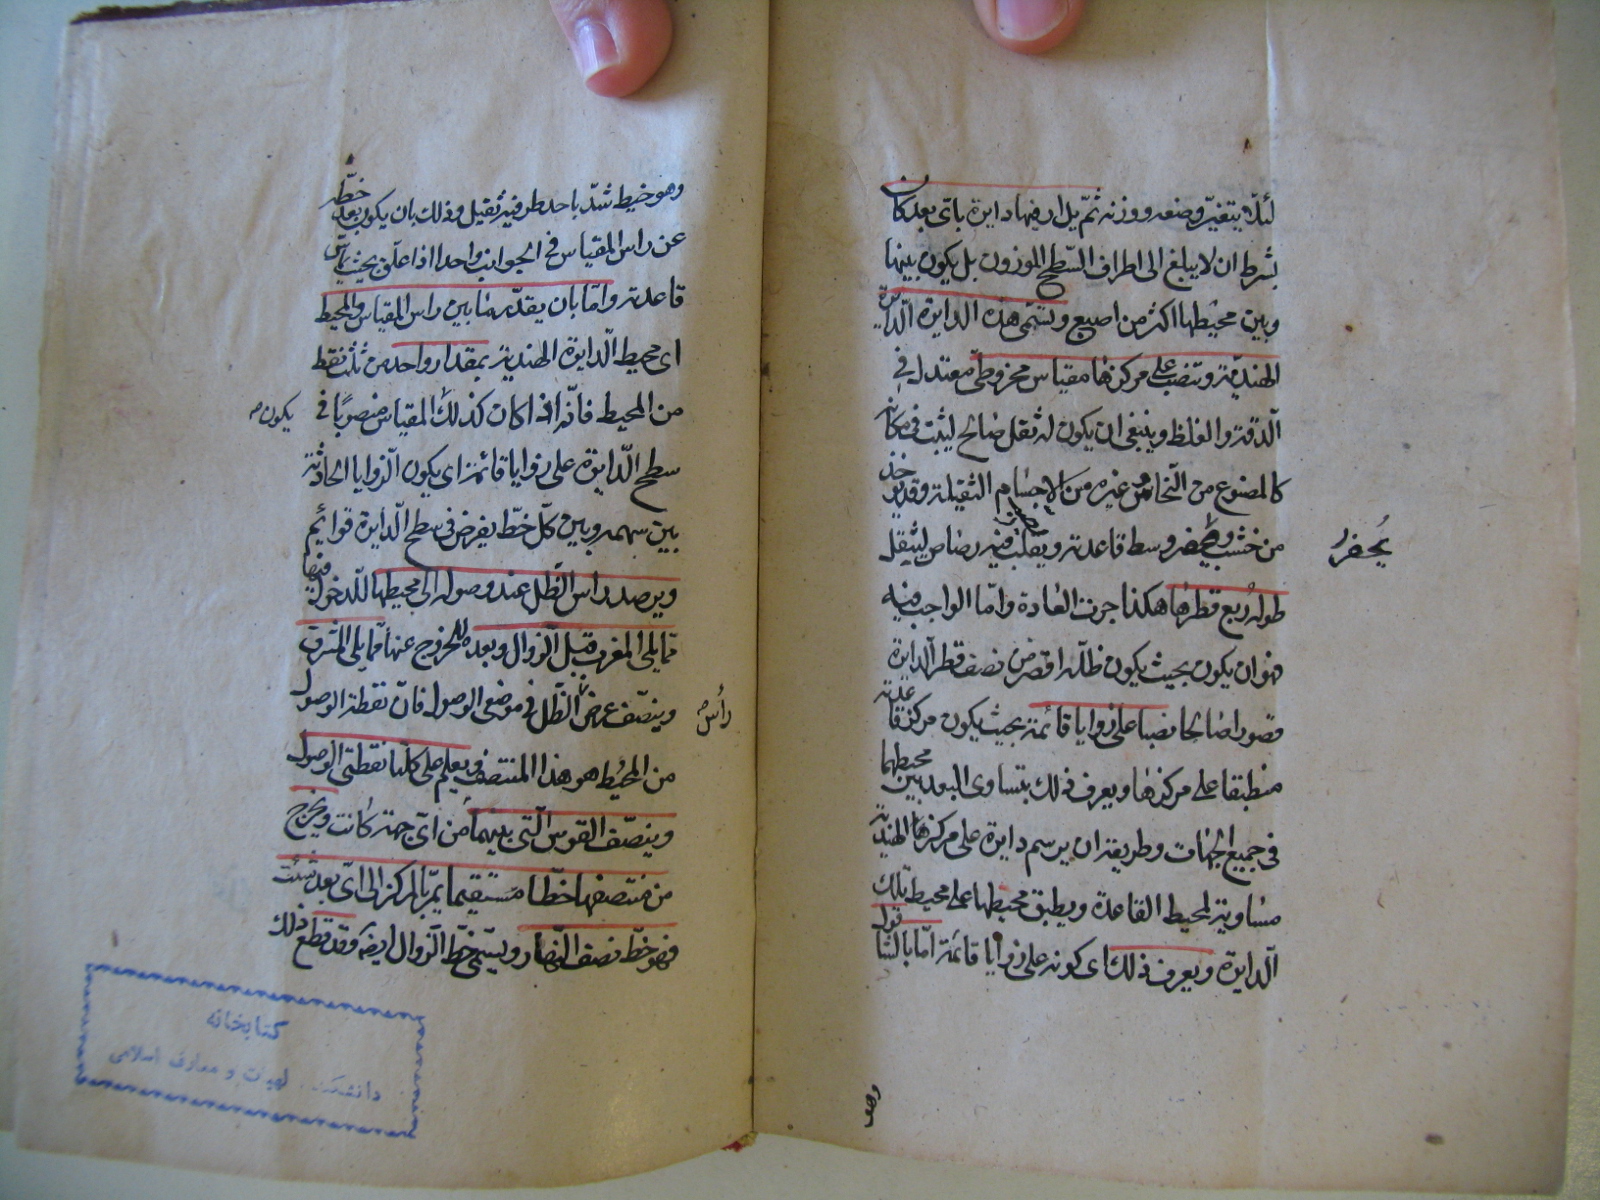 لئلا يتغير وضعه ووزنه ثم يدار فيها دايرة باى بعد كان
بشرط ان لا يبلغ الى اطراف السطح الموزون بل يكون بينها
وبين محيطها اكثر من اصبع وتسمى هذه الدايرة الدايرة
الهندية وتنصب على مركزها مقياس مخروطى معتدل فى
الدقة والغلظ وينبغى ان يكون له ثقل صالح ليثبت فى مكانه
كالمصنوع من النحاس وغيره من الاجسام الثقيلة وقد يتخذ
من خشب ويحفر وسط قاعدته ويصب فيه رصاص ليثقل
يحفر
طوله ربع قطرها هكذا جرت العادة واما الواجب فيه
فهو ان يكون بحيث يكون ظله اقصر من نصف قطر الدايرة
قصورا صالحا نصبا على زوايا قائمة بحيث يكون مركز قاعدته
منطبقا على مركزها ويعرف ذلك بتساوى البعد بين محيطهما
فى جميع الجهات وطريقه ان يرسم دايرة على مركزها الهندية
مساوية لمحيط القاعدة ويطبق محيطها على محيط تلك
الدايرة ويعرف ذلك اى كونه على زوايا قائمة اما بالشاقول
وهو
وهو خيط شد باحد طرفيه ثقيل وذلك بان يكون بعد خطه
عن راس المقياس فى الجوانب واحدا اذا علق بحيث يماس
قاعدته واما بان يقدر ما بين راس المقياس والمحيط
اى محيط الدايرة الهندية بمقدار واحد من ثلث نقط
من المحيط فانه اذا كان كذلك المقياس منصوبا فى
يكون صه
سطح الدايرة على زوايا قائمة اى يكون الزوايا الحادثة
بين سهمه وبين كل خط يفرض فى سطح الدايرة قوائم
ويرصد راس الظل عند وصوله الى محيطها للدخول فيها
مما يلى المغرب قبل الزوال وبعده للخروج عنها مما يلى المشرق
وينصف عرض الظل فى موضعى الوصول فان نقطة الوصول
رأس صه
من المحيط هو هذا المنتصف ويعلم على كلتا نقطتى الوصول
وينصف القوس التى بينهما من اى جهة كانت ويخرج
من منتصفها خطا مستقيما يمر بالمركز الى اى بعد شئت
فهو خط نصف النهار ويسمى خط الزوال ايضا وقد قطع ذلك
كتابخانه
دانشكده الهيات و معارف اسلامى